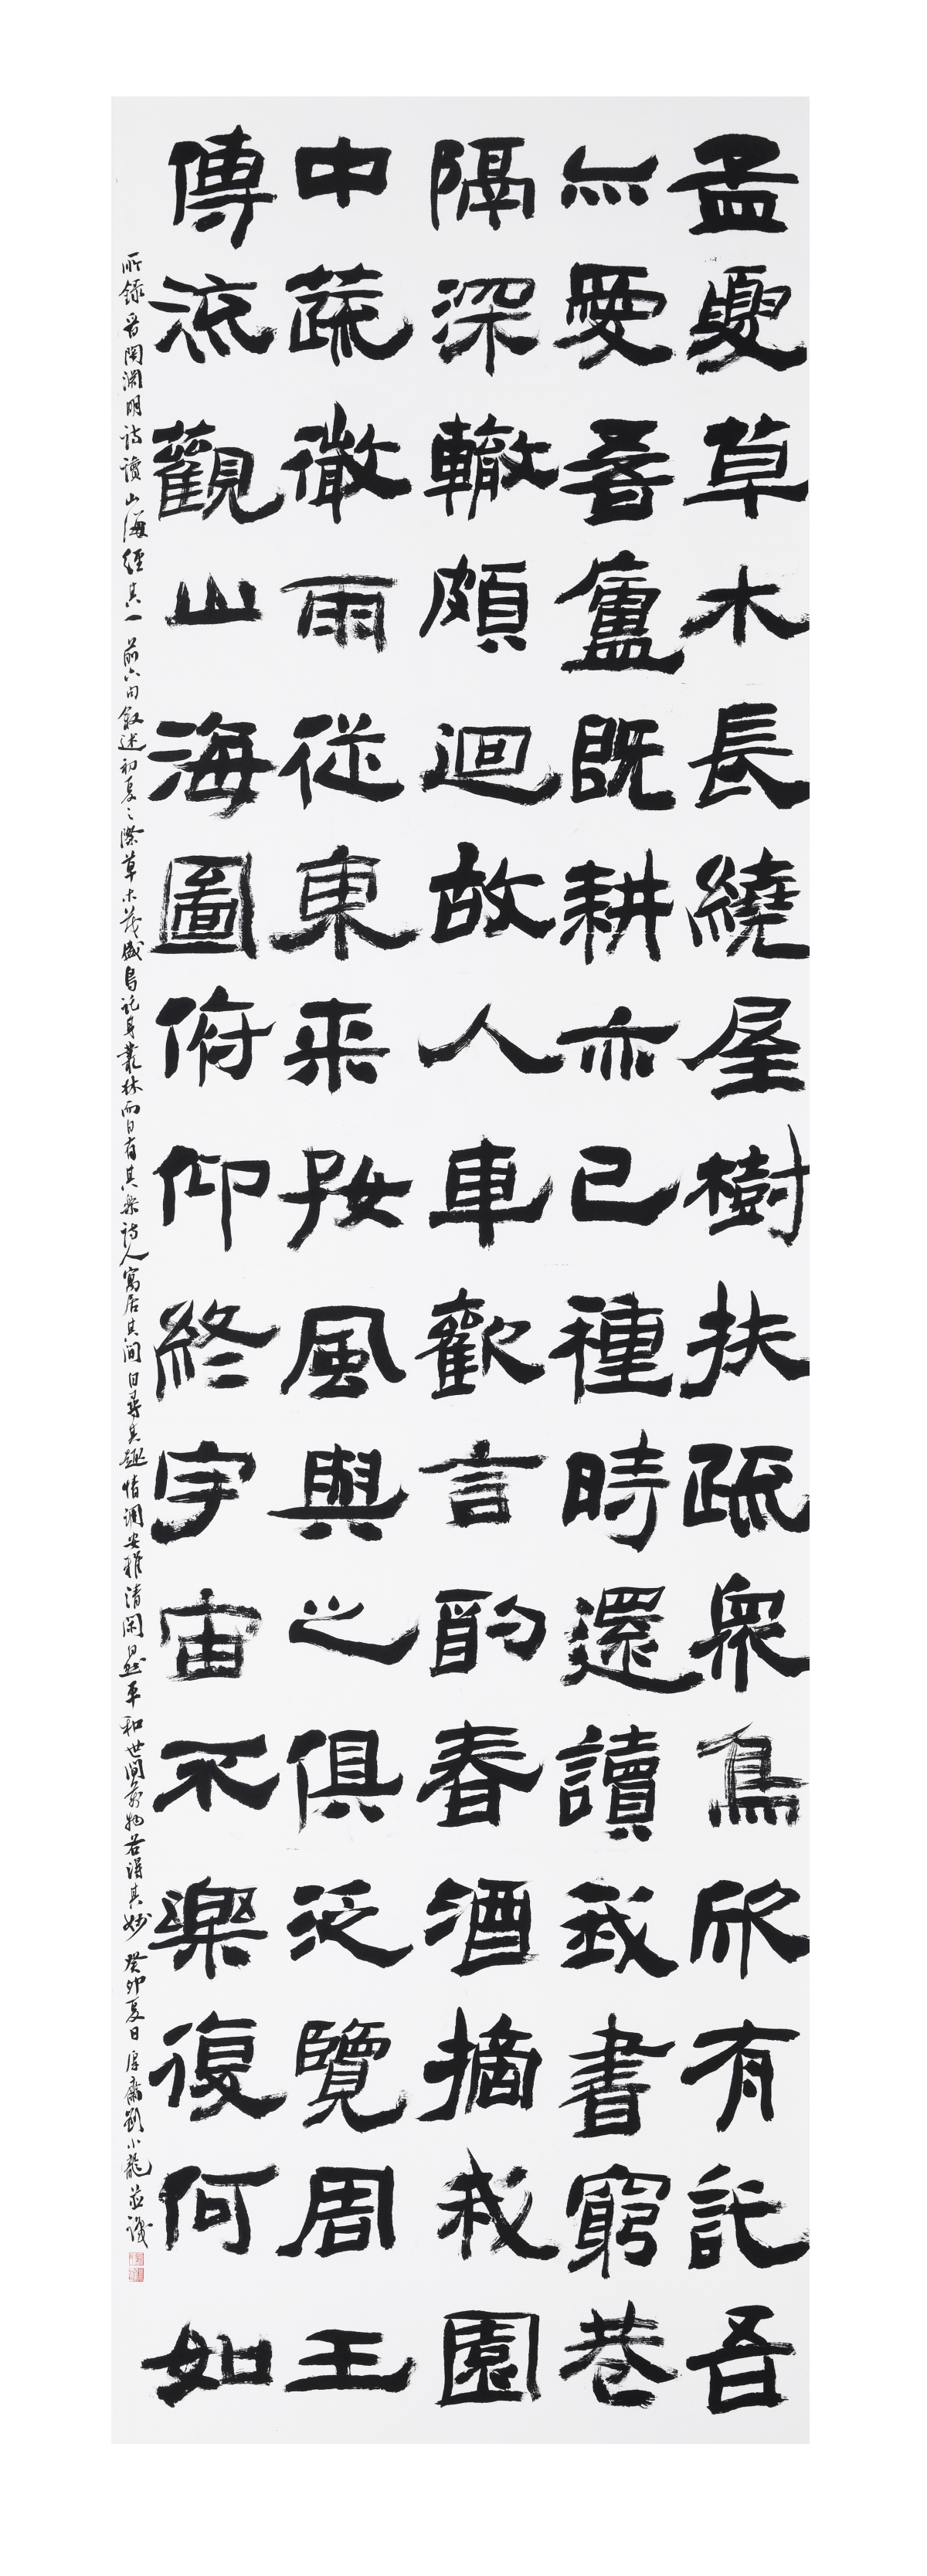 孟夏草木長繞屋樹扶疏衆鳥欣有託吾
亦愛吾廬既耕亦已種時還讀我書窮巷
隔深轍頗迴故人車歡言酌春酒摘我園
中蔬微雨從東来好風與之俱泛覽周王
傳流觀山海圖俯仰終宇宙不樂復何如
所録晉陶淵明詩讀山海經其一前六句叙述初夏之際草木茂盛鳥託身叢林而自有其樂詩人寓居其間自尋其趣情調安雅清閑自然平和世間萬物各得其妙癸卯夏日劉小龍並識